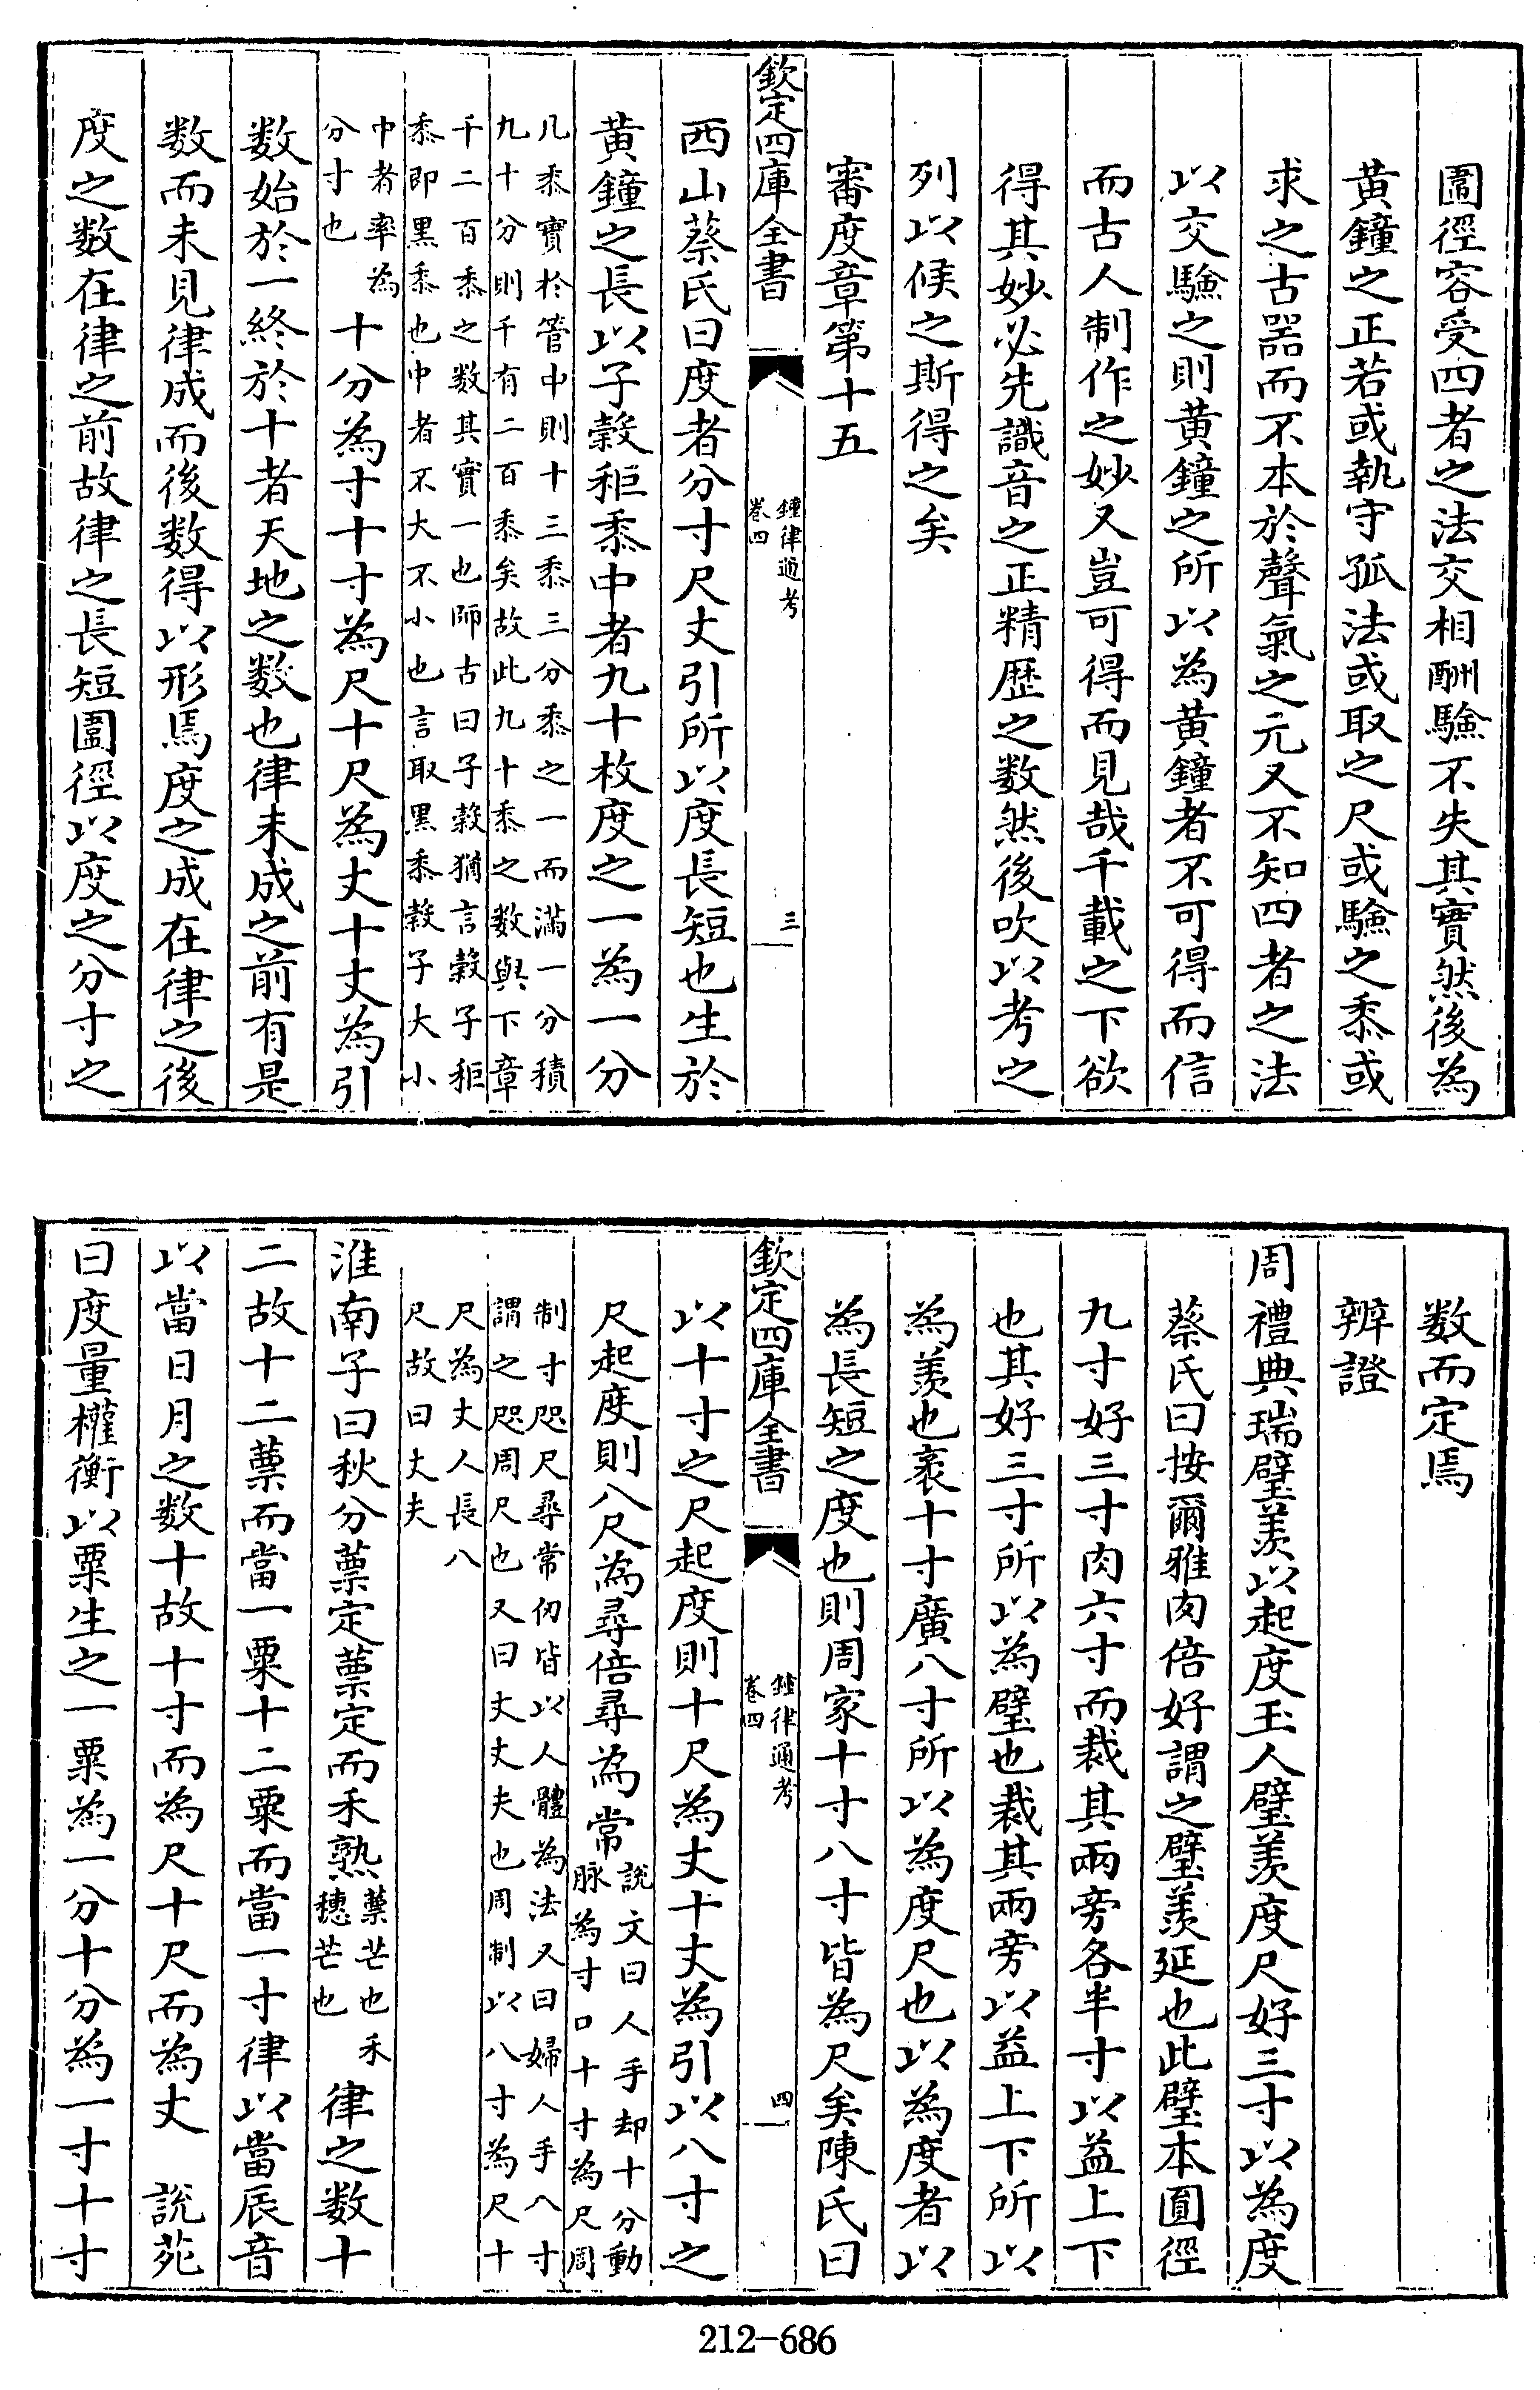 圍徑容受四者之法交相酬驗不失其實然後為
黄鐘之正若或執守孤法或取之尺或驗之黍或
求之古器而不本於聲氣之元又不知四者之法
以交驗之則黄鐘之所以為黄鐘者不可得而信
而古人制作之妙又豈可得而見哉千載之下欲
得其妙必先識音之正精歷之数然後吹以考之
列以候之斯得之矣
審度章第十五
欽定四庫全書
鐘律通考
卷四
三
西山蔡氏曰度者分寸尺丈引所以度長短也生於
黄鐘之長以子穀秬黍中者九十枚度之一為一分
凡黍實於管中則十三黍三分黍之一而滿一分積
九十分則千有二百黍矣故此九十黍之数與下章
千二百黍之数其實一也師古曰子穀猶言穀子秬
黍即黑黍也中者不大不小也言取黑黍穀子大小
中者率為
分寸也
十分為寸十寸為尺十尺為丈十丈為引
数始於一終於十者天地之数也律未成之前有是
数而未見律成而後数得以形焉度之成在律之後
度之数在律之前故律之長短圍徑以度之分寸之
数而定焉
辨證
周禮典瑞璧羡以起度玉人璧羡度尺好三寸以為度
蔡氏曰按爾雅肉倍好謂之璧羡延也此璧本圓徑
九寸好三寸肉六寸而裁其兩旁各半寸以益上下
也其好三寸所以為璧也裁其兩旁以益上下所以
為羡也袤十寸廣八寸所以為度尺也以為度者以
為長短之度也則周家十寸八寸皆為尺矣陳氏曰
欽定四庫全書
鐘律通考
卷四
四
以十寸之尺起度則十尺為丈十丈為引以八寸之
尺起度則八尺為尋倍尋為常
說文曰人手却十分動
脉為寸口十寸為尺周
制寸咫尺尋常仞皆以人體為法又曰婦人手八寸
謂之咫周尺也又曰丈丈夫也周制以八寸為尺十
尺為丈人長八
尺故曰丈夫
淮南子曰秋分蔈定蔈定而禾熟
蔈芒也禾
穗芒也
律之数十
二故十二蔈而當一粟十二粟而當一寸律以當辰音
以當日月之数十故十寸而為尺十尺而為丈　說苑
曰度量權衡以粟生之一粟為一分十分為一寸十寸
212-686